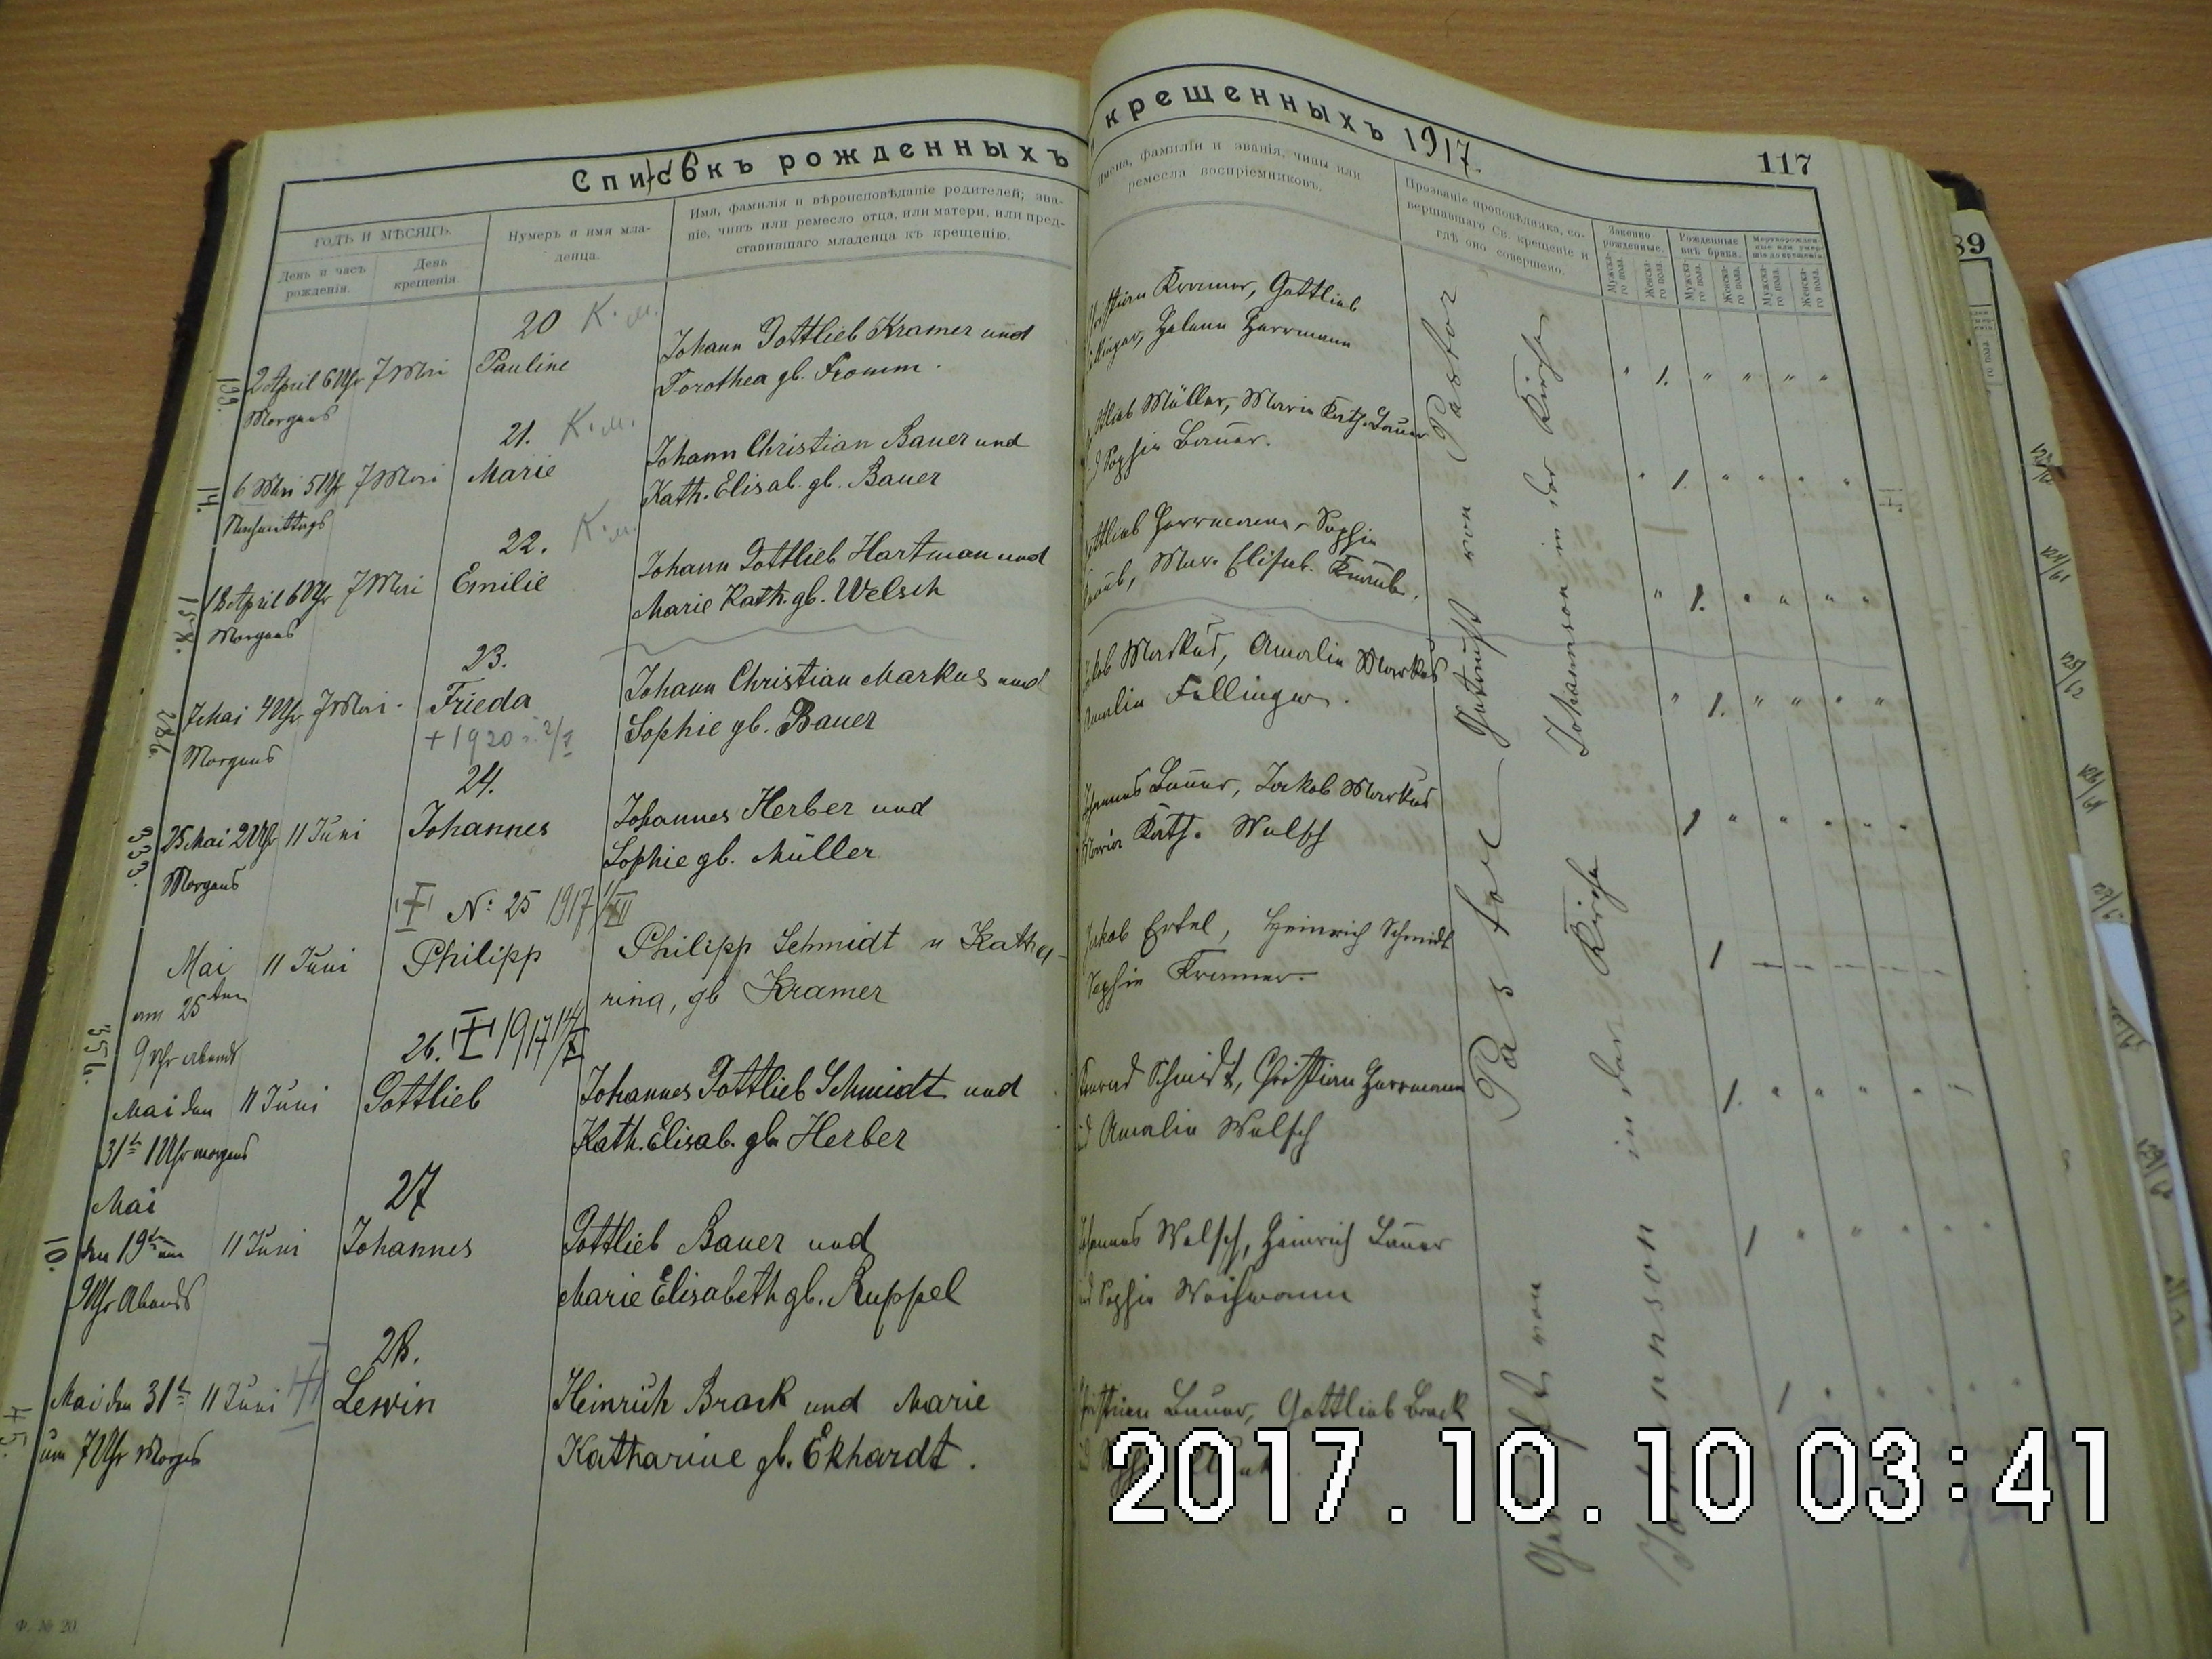 Списокъ рожденныхъ
крещенныхъ 1917.
117
89
ГОДЪ И МѢСЯЦЪ.
День и часъ рожденія.
День крещенія.
Нумеръ и имя мла-
денца.
Имя, фамилія и вѣроисповѣданіе родителей; зва-
ніе, чинъ или ремесло отца, или матери, или пред-
ставившаго младенца къ крещенію.
Имена, фамиліи и званія, чины или
ремесла воспріемниковъ.
Прозваніе проповѣдника, со-
вершавшаго Св. крещеніе и
гдѣ оно совершено.
Законно-
рожденные.
Рожденные
внѣ брака.
Мертворожден-
ные или умер-
шіе до крещенія.
Мужска-
го пола.
Женска-
го пола.
Мужска-
го пола.
Женска-
го пола.
Мужска-
го пола.
Женска-
го пола.
20 К.м.
2 April 6 Uhr 7 Mai Pauline Johann Gottlieb Kramer und
Morgens Dorothea gb. Fromm.
Christian Kramer, Gottlieb
Helena Herrmann
21. К.м.
14. 6 Mai 5 Uhr 7 Mai Marie Johann Christian Bauer und
Nachmittags Kath. Elisab. gb. Bauer
Gottlieb Müller, Maria Kath. Bauer
und Sophie Bauer.
22. К.м.
18 April 6 Uhr 7 Mai Emilie Johann Gottlieb Hartman und
Morgens Marie Kath. gb. Welsch
Gottlieb Herrmann, Sophie
Mar. Elisab.
23.
7 Mai 4 Uhr 7 Mai Frieda Johann Christian Markus und
Morgens + 1920 Sophie gb. Bauer
Jakob Markus, Amalie Markus
Amalie Fellinger.
24.
333. 25 Mai 2 Uhr 11 Juni Johannes Johannes Herber und
Morgens Sophie gb. Müller
Johannes Bauer, Jakob Markus
Maria Kath. Welsch
N: 25 1917
Mai 11 Juni Philipp Philipp Schmidt u Katha-
am 25ten rina, gb Kramer
9 Uhr Abends
Jakob Ertel, Heinrich Schmidt
Sophie Kramer.
26. 1917
356. Mai den 11 Juni Gottlieb Johannes Gottlieb Schmidt und
31t 1 Uhr morgens Kath. Elisab. gb. Herber
Konrad Schmidt, Christian Herrmann
und Amalie Welsch
Mai 27
10. den 19ten um 11 Juni Johannes Gottlieb Bauer und
9 Uhr Abends Marie Elisabeth gb. Ruppel
Johannes Welsch, Heinrich Bauer
und Sophie
28.
45. Mai den 31t 11 Juni Lewin Heinrich Brack und Marie
um 7 Uhr Morgens Katharine gb. Ekhardt.
Christian Bauer, Gottlieb Brack
Getauft von Pastor
Johannson in der Kirche
Getauft von Pastor
Johannson in der Kirche
Ф. № 20.
2017.10.10 03:41